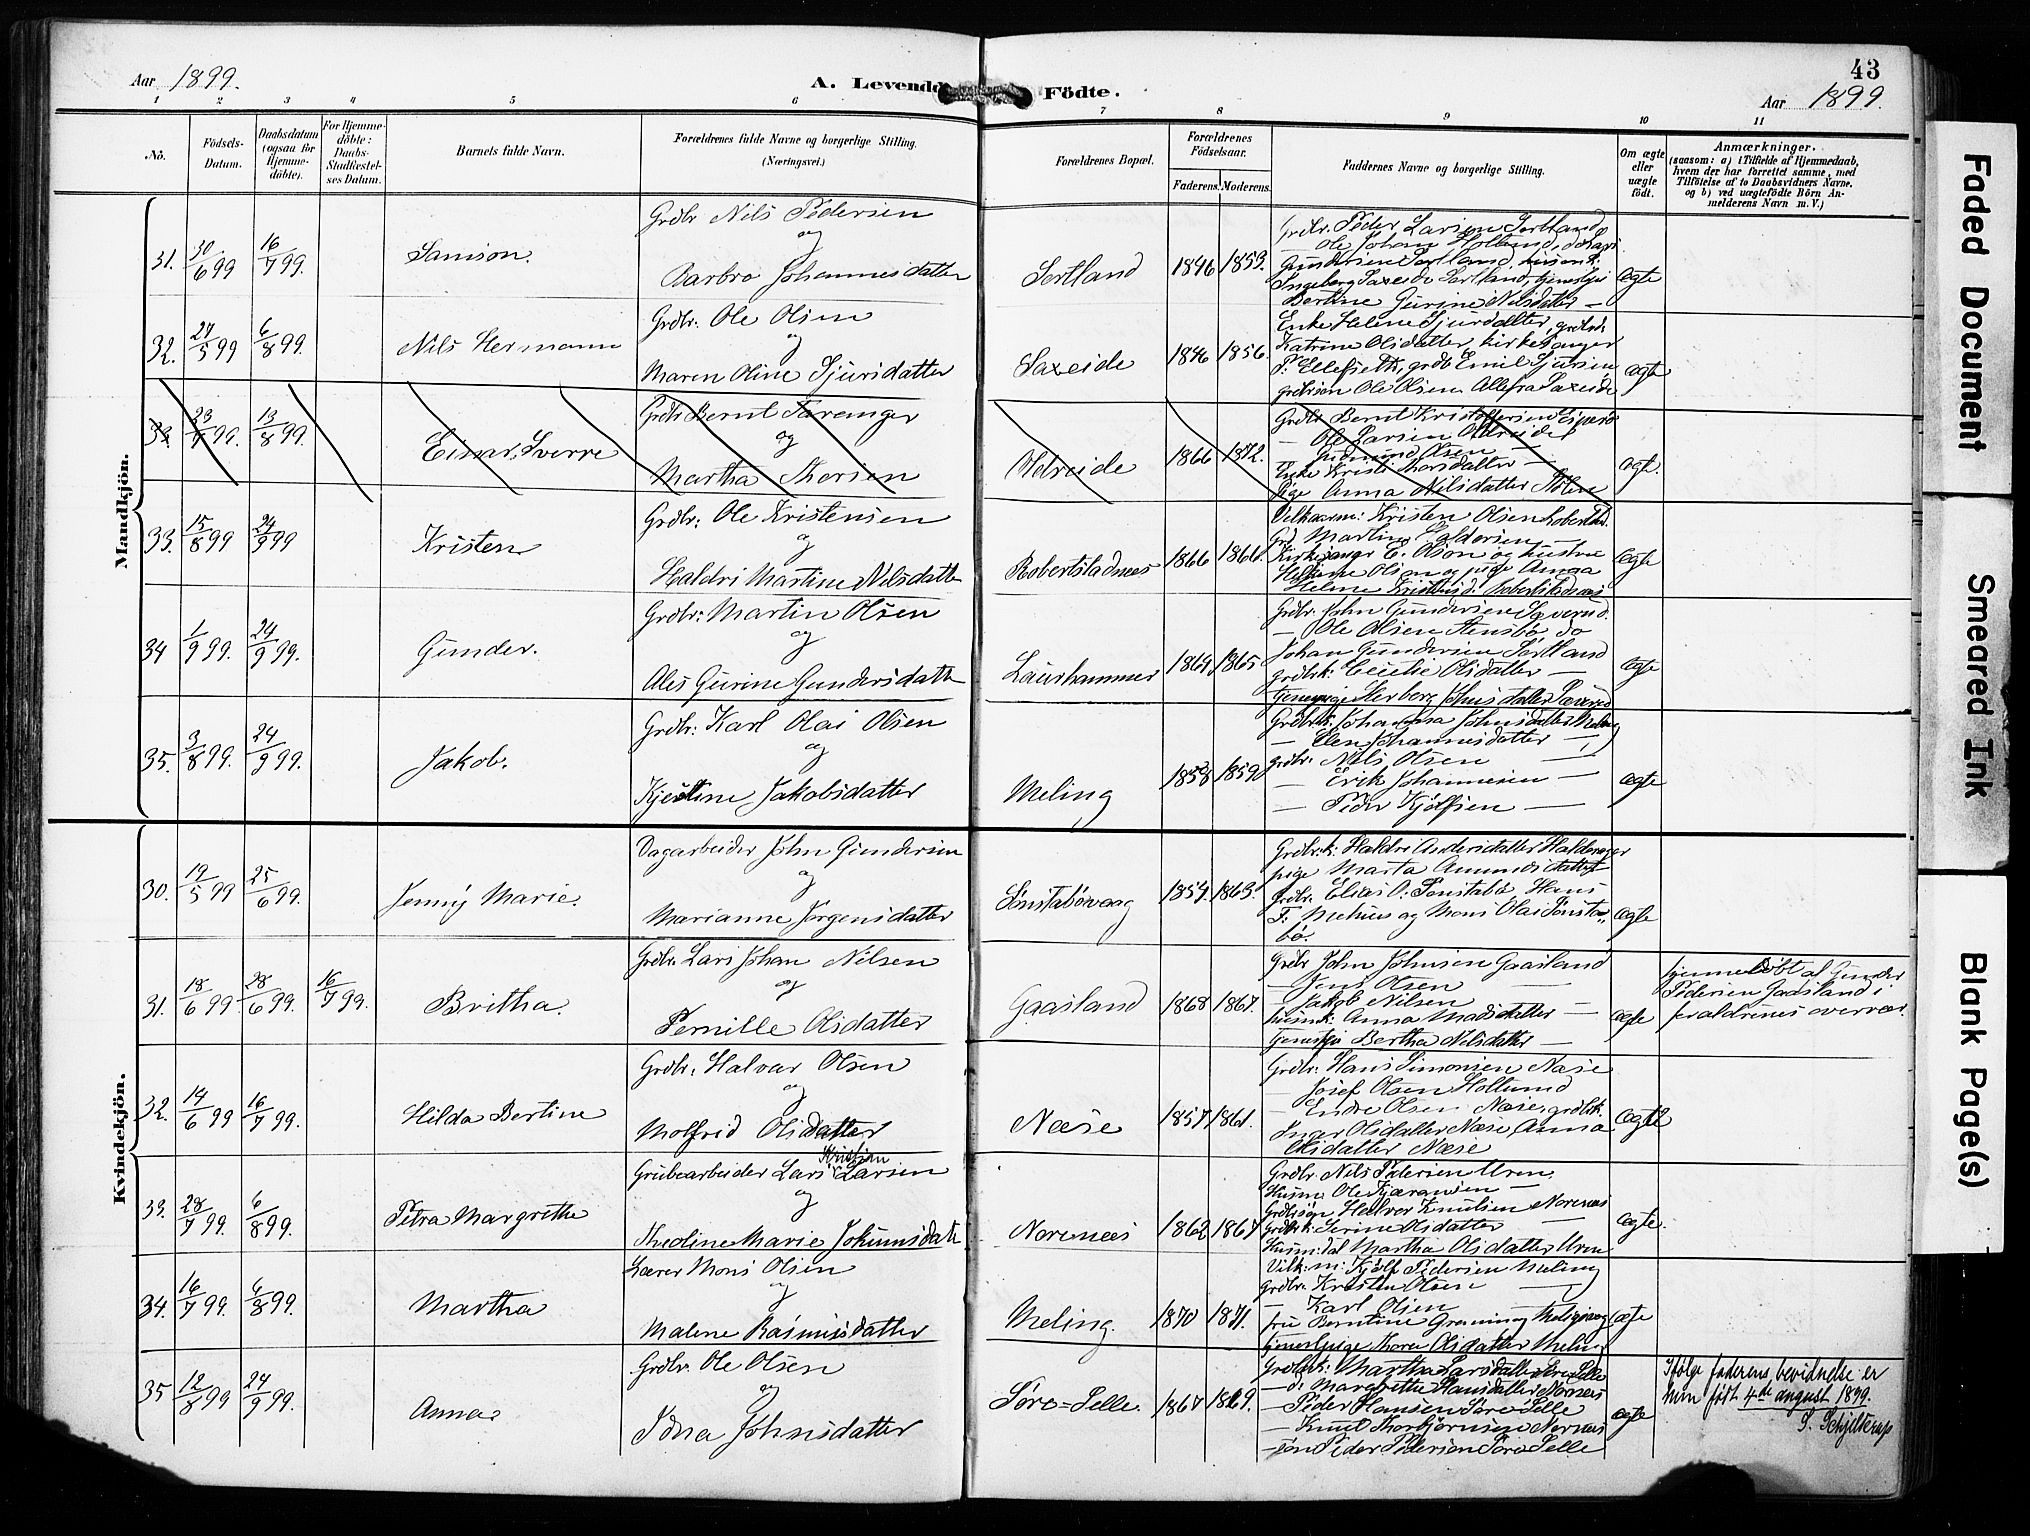 Aar 1899.
A. Levende Födte.
43
Aar 1899.
1 2 3 4 5 6 7 8 9 10 11
No.
Födsels-Datum.
Daabsdatum (ogsaa for Hjemme-döbte).
For Hjemme-döbte: Daabs-Stadfæstel-ses Datum.
Barnets fulde Navn.
Forældrenes fulde Navne og borgerlige Stilling.
(Næringsvei.)
Forældrenes Bopæl.
Forældrenes Födselsaar.
Faderens. Moderens.
Faddernes Navne og borgerlige Stilling.
Om ægte eller uægte födt.
Anmærkninger.
(saasom: a) i Tilfælde af Hjemmedaab, hvem der har forrettet samme, med Tilföielse af to Daabsvidners Navne, og b) ved uægtefödte Börn An-melderens Navn m. V.)
Mandkjön.
31. 30/6 99 16/7 99. Samson.
Grdbr Nils Pedersen
og
Barbro Johannesdatter
Sortland 1846 1853.
Grdbr. Peder Larsen Sortland
Ole Johan Hollund, do Lars
Gundersen Sortland
Ingeborg Saxeide Sortland, tjenstpi
Bertine Gurine Nilsdatter —
ægte
32. 27/5 99 6/8 99. Nils Hermann
Grdbr: Ole Olsen
og
Maren Oline Sjursdatter
Saxeide 1846 1856.
Enke Helene Sjursdatter, grdbrd:
Katrine Olsdatter, kirkesanger
T. Ellefsen grdb Emil Sjursen
grdbrsøn Ole Olsen Alle fra Saxeide
ægte
33 23/7 99. 13/8 99. Einar Sverre
Grdbr Bernt Taranger
og
Martha Thorsen
Olvreide 1866 1872.
Grdbr Bernt Kristoffersen
— Ole Larsen Olvreide
Gudmund Olsen —
Enke Kristi Thorsdatter —
Pige Anna Nilsdatter
ægte.
33. 15/8 99 24/9 99 Kristen
Grdbr: Ole Kristensen
og
Haldri Martine Nilsdatter
Robertstadnæs 1866 1866.
Vilkaarm: Kristen Olsen
Grd Martin Haldorsen —
Kirkesanger E. Olson og hustru
Helene Olsen og pige Anna
ægte
34 1/9 99. 24/9 99. Gunder.
Grdbr: Martin Olsen
og
Ales Gurine Gundersdatte
Laurhammer 1869 1865
Grdbr. John Gundersen
— Ole Olsen Stensbø do
Johan Gundersen Sortland
grdbrk: Cecilie Olsdatter —
ægte
35. 3/8 99. 24/9 99. Jakob.
Grdbr: Karl Olai Olsen
og
Kjerstine Jakobsdatter
Meling 1858 1859
Grdbrk: Johanna Johnsdatter Meling
— Elen Johannesdatter —
grdbr: Nils Olsen —
— Erik Johannesen —
— Peder Kjølfsen —
ægte
Kvindekjön.
30. 19/5 99 25/6 99. Jenny Marie.
Dagarbeider John Gundersen
og
Marianne Jørgensdatter
Sønstabøvaag 1857. 1863.
Grdbr.k: Haldri Andersdatter
pige Marta Amundsdatter
Grdbr. Elias O: Sønstabø Hans
T: Mehus og Mons Olai Sønsta-
bø.
ægte
31. 18/6 99. 28/6 99. 16/7 99. Britha.
Grdbr. Lars Johan Nilsen
og
Pernille Olsdatter
Gaasland 1868 1867.
Grdbr John Johnsen Gaasland
— Jens Olsen —
— Jakob Nilsen —
husmk: Anna Madsdatter —
tjenstpi Bertha Nilsdatter —
ægte
hjemmedöbt af Gunder
Pedersen Gaasland i
forældrenes overvær.
32. 14/6 99 16/7 99. Hilda Bertine
Grdbr. Halvar Olsen
og
Molfrid Olsdatter
Næse 1857 1861.
Grdbr: Hans Simonsen Næse
— Josef Olsen Hollund
— Endre Olsen Næse, grdbrk.
Inar Olsdatter Næse, Anna
Olsdatter Næse
ægte
33. 28/7 99. 6/8 99. Petra Margrethe
Grubearbeider Lars Kristian Larsen
og
Theoline Marie Johannesdatt.
Norenæs 1862 1867
Grdbr. Nils Pedersen Uren.
Husm. Ole Kjærandsen —
Grdbrsøn Halvor Knutsen Norenæs
Grdbrk: Serine Olsdatter —
Husm:dat Martha Olsdatter Urne
ægte.
34. 16/7 99. 6/8 99. Martha
Lærer Mons Olsen
og
Malene Rasmusdatter
Meling. 1870 1871.
Vilk:m: Kjølf Pedersen Meling
Grdbr. Kristen Olsen —
— Karl Olsen
fru Berntine
tjenestpige Thora Olsdatter Meling
ægte
35 12/8 99 24/9 99. Anna
Grdbr. Ole Olsen
og
Idna Johnsdatter
Søre=Selle. 1867 1869.
Grdbrk: Martha Larsdatter Søre Selle
— d: Margrethe Hansdatter Nornæs
— Peder Hansen Søre Selle
— Knut Thorbjørnsen Nornæs
— søn Peder Pedersen Søre Selle
ægte
Ifølge faderens bevidnelse er
hun født 4de august 1899.
S. Schjelderup
Faded Document
Smeared Ink
Blank Page(s)